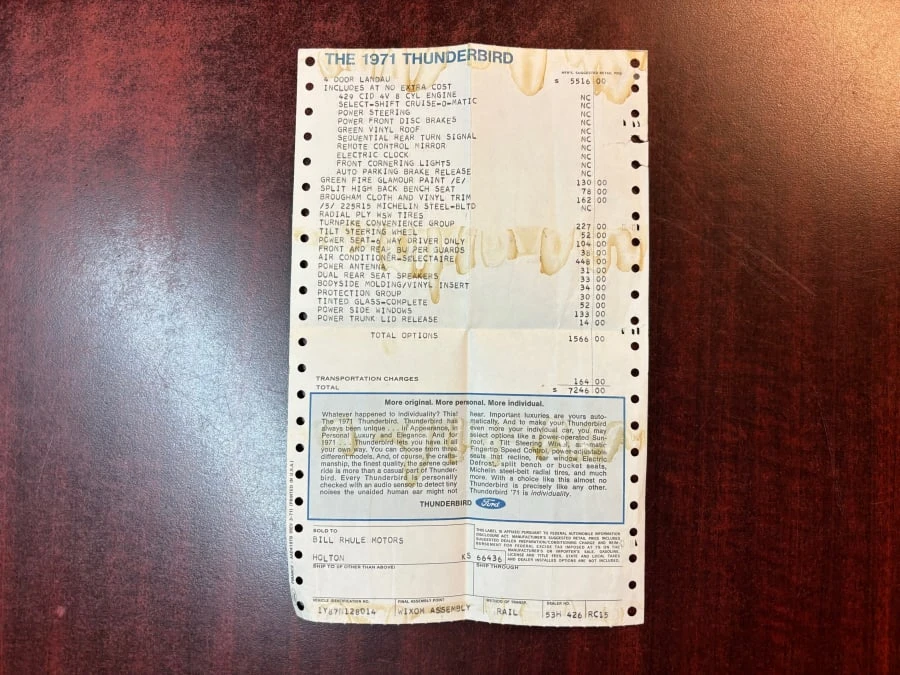 THE 1971 THUNDERBIRD
MFR'S. SUGGESTED RETAIL PRICE
4 DOOR LANDAU $ 5516 00
INCLUDES AT NO EXTRA COST
429 CID 4V 8 CYL ENGINE NC
SELECT-SHIFT CRUISE-O-MATIC NC
POWER STEERING NC
POWER FRONT DISC BRAKES NC
GREEN VINYL ROOF NC
SEQUENTIAL REAR TURN SIGNAL NC
REMOTE CONTROL MIRROR NC
ELECTRIC CLOCK NC
FRONT CORNERING LIGHTS NC
AUTO PARKING BRAKE RELEASE NC
GREEN FIRE GLAMOUR PAINT /E/ 130 00
SPLIT HIGH BACK BENCH SEAT 78 00
BROUGHAM CLOTH AND VINYL TRIM 162 00
/5/ 225R15 MICHELIN STEEL-BLTD NC
RADIAL PLY WSW TIRES
TURNPIKE CONVENIENCE GROUP 227 00
TILT STEERING WHEEL 52 00
POWER SEAT-6 WAY DRIVER ONLY 104 00
FRONT AND REAR BUMPER GUARDS 38 00
AIR CONDITIONER-SELECTAIRE 448 00
POWER ANTENNA 31 00
DUAL REAR SEAT SPEAKERS 33 00
BODYSIDE MOLDING/VINYL INSERT 34 00
PROTECTION GROUP 30 00
TINTED GLASS-COMPLETE 52 00
POWER SIDE WINDOWS 133 00
POWER TRUNK LID RELEASE 14 00
TOTAL OPTIONS 1566 00
TRANSPORTATION CHARGES 164 00
TOTAL $ 7246 00
More original. More personal. More individual.
Whatever happened to individuality? This!
The 1971 Thunderbird. Thunderbird has
always been unique . . . in Appearance, in
Personal Luxury and Elegance. And for
1971 . . . Thunderbird lets you have it all
your own way. You can choose from three
different models. And, of course, the crafts-
manship, the finest quality, the serene quiet
ride is more than a casual part of Thunder-
bird. Every Thunderbird is personally
checked with an audio sensor to detect tiny
noises the unaided human ear might not
hear. Important luxuries are yours auto-
matically. And to make your Thunderbird
even more your individual car, you may
select options like a power-operated Sun-
roof, a Tilt Steering Wheel, automatic
Fingertip Speed Control, power-adjustable
seats that recline, rear window Electric
Defrost, split bench or bucket seats,
Michelin steel-belt radial tires, and much
more. With a choice like this almost no
Thunderbird is precisely like any other.
Thunderbird '71 is individuality.
THUNDERBIRD Ford
SOLD TO
BILL RHULE MOTORS
HOLTON KS 66436
SHIP TO (IF OTHER THAN ABOVE)
THIS LABEL IS AFFIXED PURSUANT TO FEDERAL AUTOMOBILE INFORMATION
DISCLOSURE ACT. MANUFACTURER'S SUGGESTED RETAIL PRICE INCLUDES
SUGGESTED DEALER PREPARATION/CONDITIONING CHARGE AND REIM-
BURSEMENT FOR FEDERAL EXCISE TAX IMPOSED AT 7% ON THE
MANUFACTURER'S OR IMPORTER'S SALE. GASOLINE,
LICENSE AND TITLE FEES, STATE AND LOCAL TAXES
AND DEALER INSTALLED OPTIONS ARE NOT INCLUDED.
SHIP THROUGH
VEHICLE IDENTIFICATION NO.
1Y87N128014
FINAL ASSEMBLY POINT
WIXOM ASSEMBLY
METHOD OF TRANSP.
RAIL
DEALER NO.
53H 426 RC15